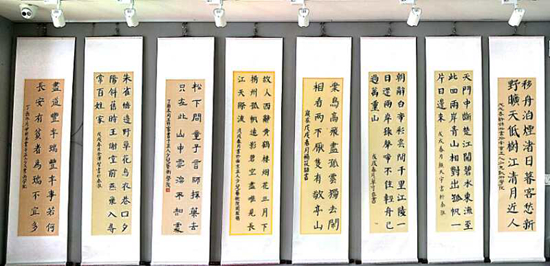 移舟泊煙渚日暮客愁新
野曠天低樹江清月近人
天門中斷楚江開碧水東流至
此回兩岸青山相對出孤帆一
片日邊來
朝辭白帝彩雲間千里江陵一
日還兩岸猿聲啼不住輕舟已
過萬重山
衆鳥高飛盡孤雲獨去閑
相看兩不厭隻有敬亭山
故人西辭黃鶴樓煙花三月下
揚州孤帆遠影碧空盡唯見長
江天際流
松下問童子言師採藥去
只在此山中雲深不知處
朱雀橋邊野草花烏衣巷口夕
陽斜舊時王謝堂前燕飛入尋
常百姓家
盡道豐年瑞豐年事若何
長安有貧者為瑞不宜多